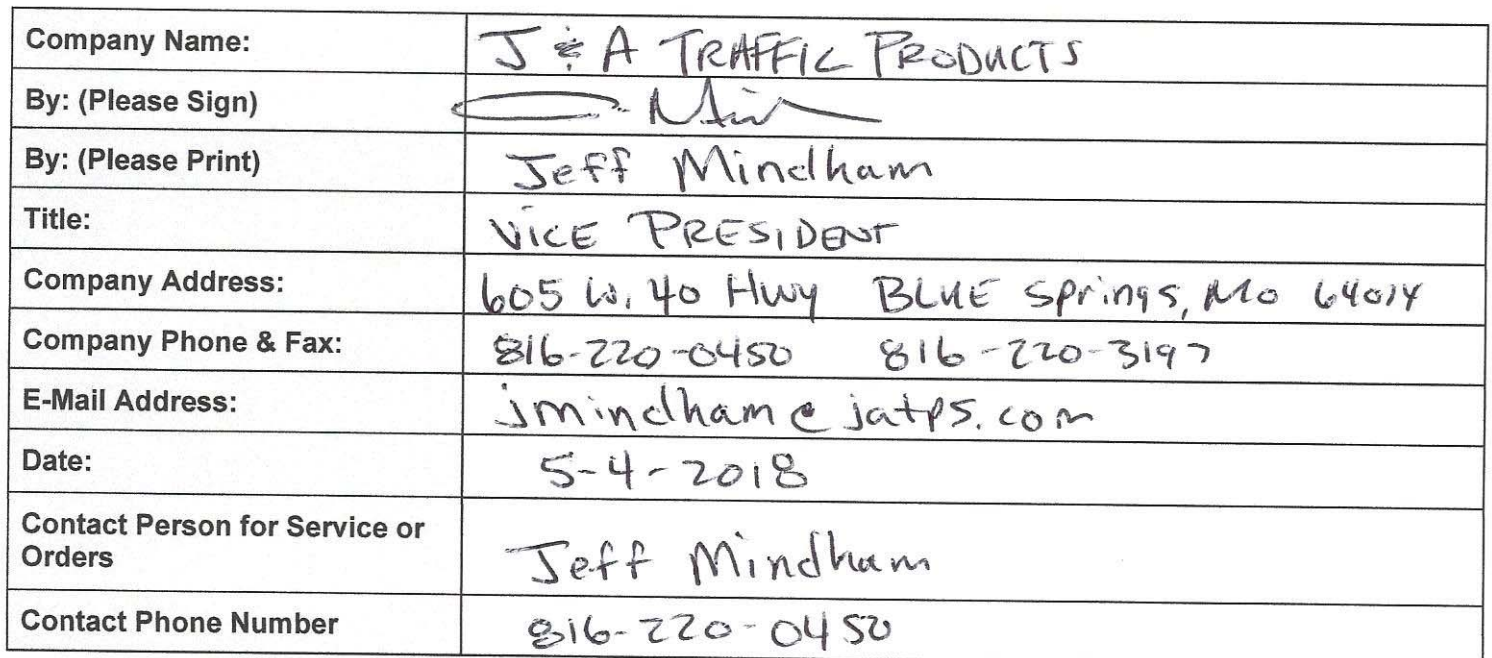 Company Name: J & A TRAFFIC PRODUCTS
By: (Please Sign)
By: (Please Print) Jeff Mindham
Title: VICE PRESIDENT
Company Address: 605 W. 40 Hwy BLUE Springs, MO 64014
Company Phone & Fax: 816-220-0450 816-220-3197
E-Mail Address: jmindham@jatps.com
Date: 5-4-2018
Contact Person for Service or
Orders Jeff Mindham
Contact Phone Number 816-220-0450